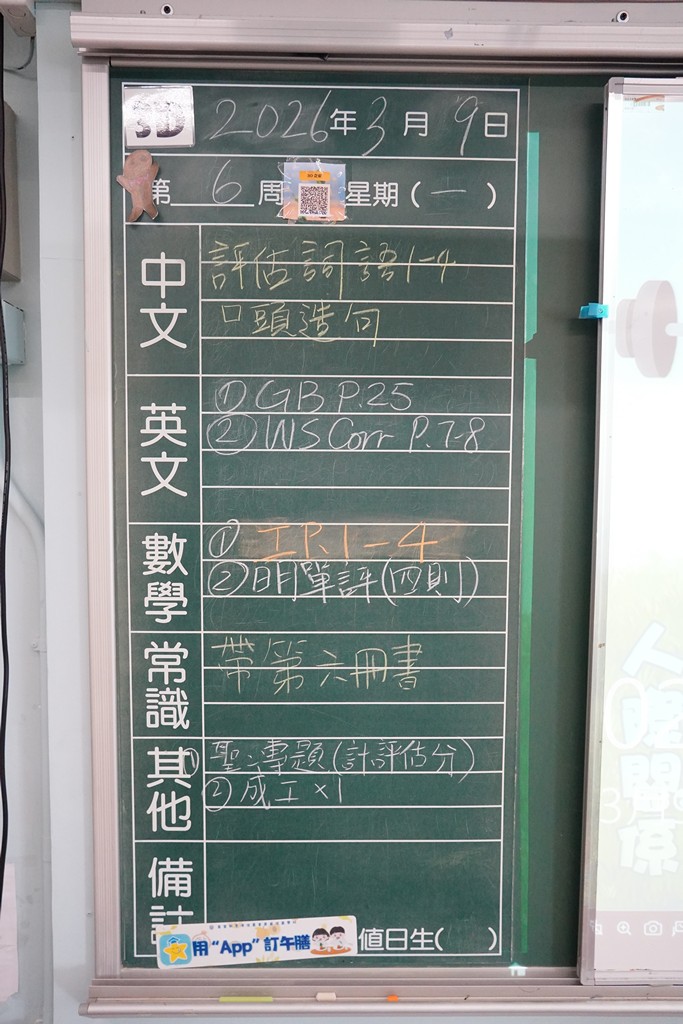 3D 2026年3月9日
第6周 星期(一)
中文
評估詞語1-4
口頭造句
英文
①GB P.25
②WS Corr P.7-8
數學
① 工P.1-4
②明單評(四則)
常識
帶第六冊書
其他
①聖:專題(計評估分)
②成工×1
備註
用“App”訂午膳
值日生( )
人際關係